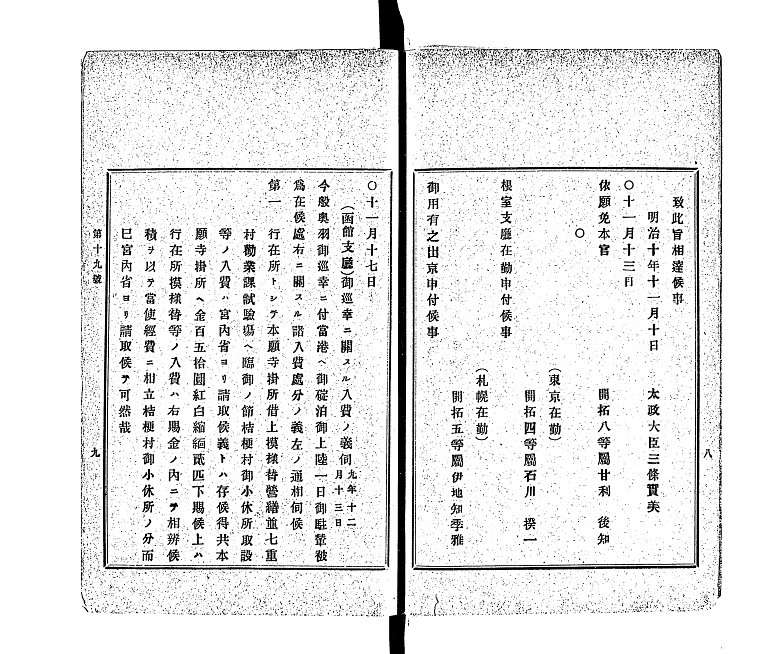 致此旨相達候事
明治十年十一月十日 太政大臣三條實美
〇十一月十三日
依願免本官 開拓八等屬甘利 後知
〇
(東京在勤)
開拓四等屬石川 揆一
根室支廳在勤申付候事
(札幌在勤)
開拓五等屬伊地知季雅
御用有之出京申付候事
八
〇十一月十七日
(函館支廳)御巡幸ニ關スル入費ノ義伺 九年十二月十三日
今般奥羽御巡幸ニ付當港ヘ御碇泊御上陸一日御駐輦被
爲在候處右ニ關スル諸入費處分ノ義左ノ通相伺候
第一 行在所トシテ本願寺掛所借上模樣替營繕並七重
村勸業課試驗塲ヘ臨御ノ節桔梗村御小休所取設
等ノ入費ハ宮内省ヨリ請取候義トハ存候得共本
願寺掛所ヘ金百五拾圓紅白縮緬貳匹下賜候上ハ
行在所模樣替等ノ入費ハ右賜金ノ内ニテ相辨候
積ヲ以テ當使經費ニ相立桔梗村御小休所ノ分而
已宮内省ヨリ請取候テ可然哉
第十九號
九